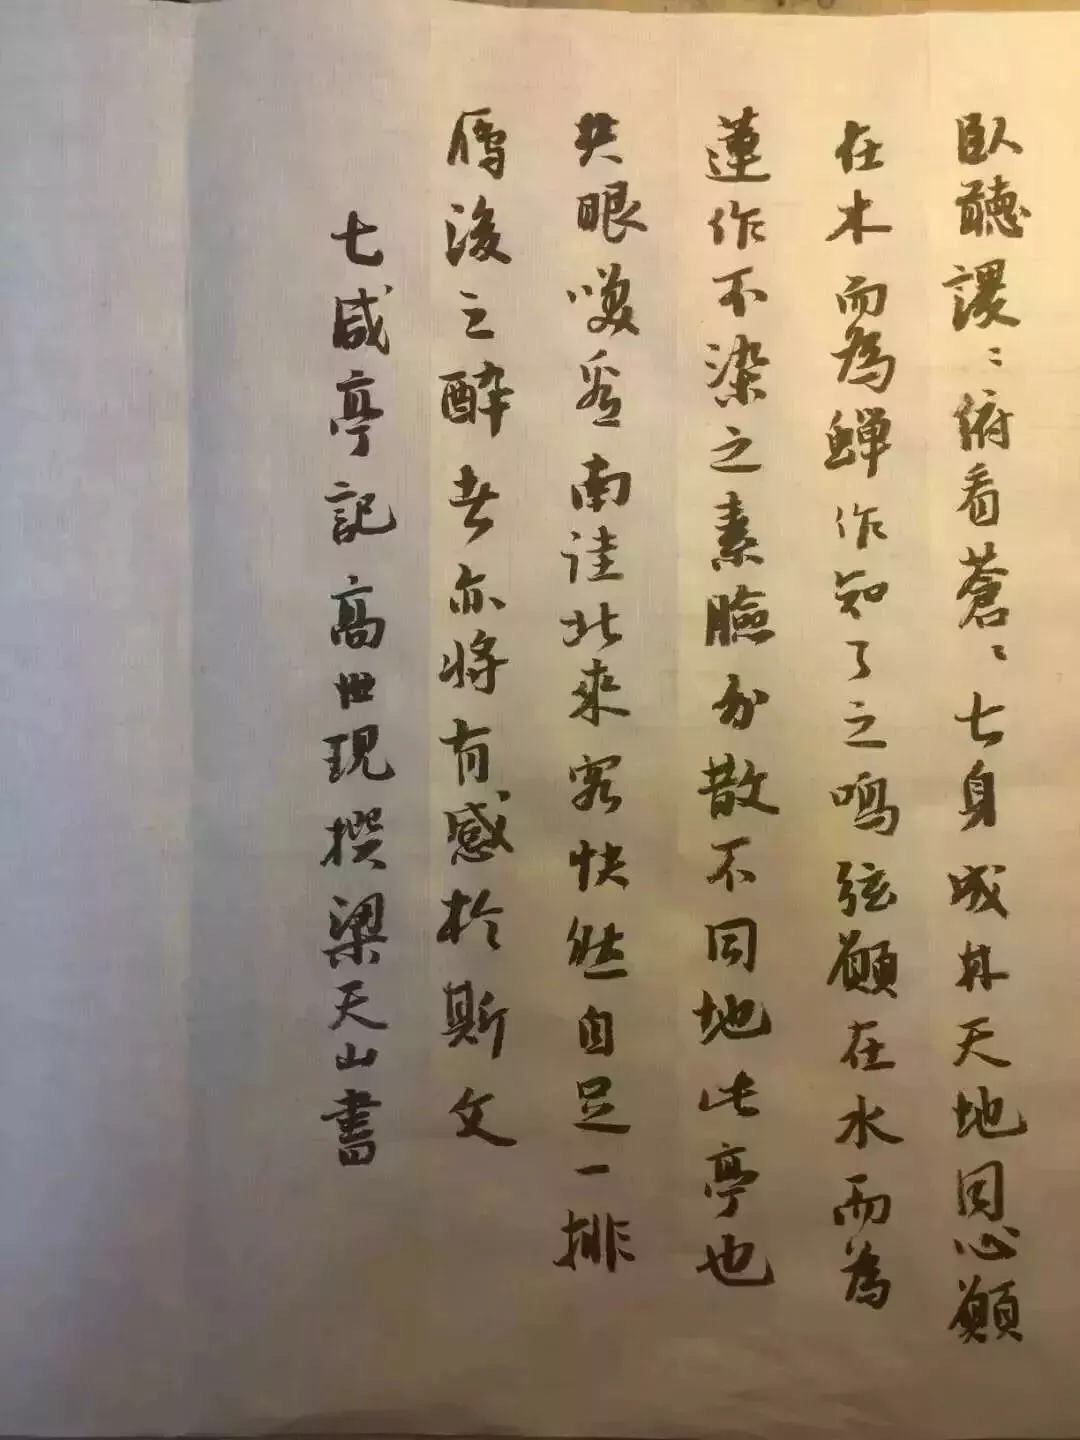 臥聽謖〻俯看蒼〻七身成林天地同心願
在木而為蟬作知了之鳴弦願在水而為
蓮作不染之素臉分散不同地此亭也
共眼喚爲南誰北來客快然自足一排
雁後之醉者亦將有感於斯文
七咸亭記高世現撰梁天山書